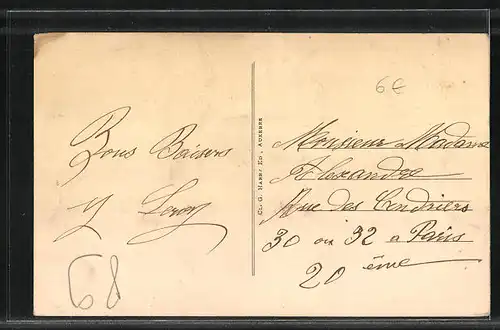 Bons Baisers
Y Leroy
89
CL. G. HAMET ED., AUXERRE
6€
Monsieur Madame
Alexandre
Rue des Cendriers
30 ou 32 a Paris
20 ème